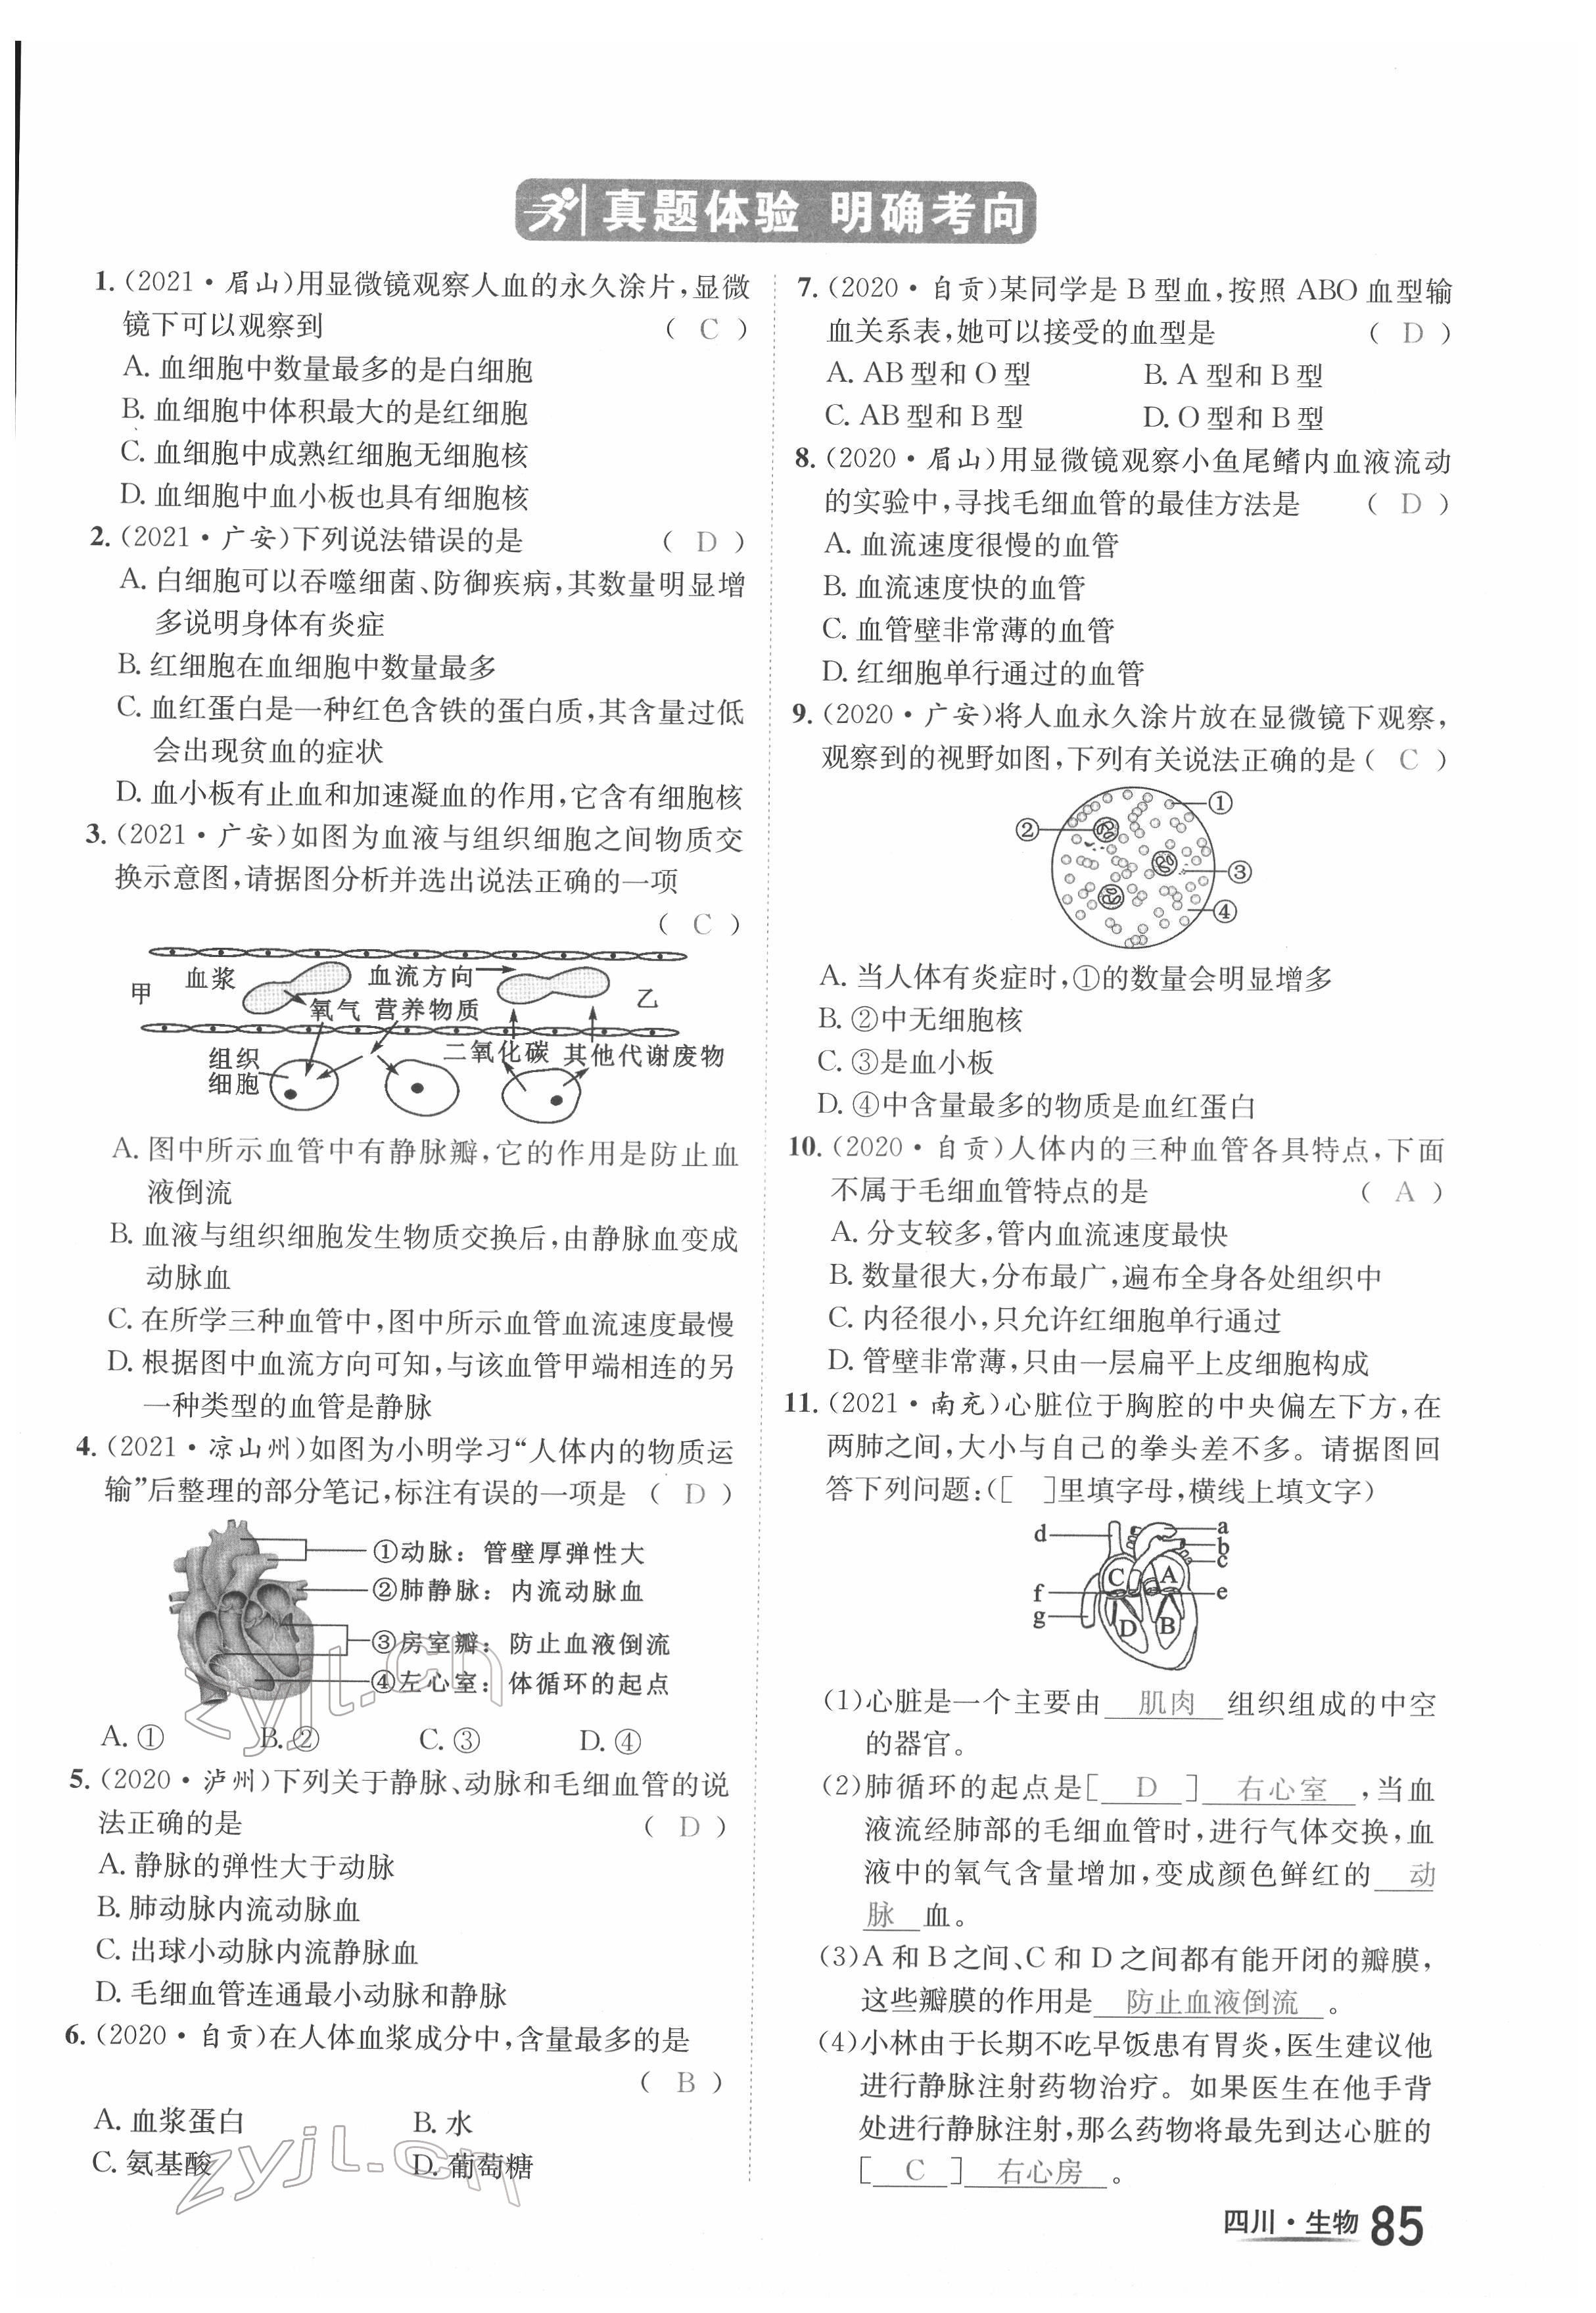 真题体验 明确考向
1.(2021·眉山)用显微镜观察人血的永久涂片,显微
镜下可以观察到 ( C )
A. 血细胞中数量最多的是白细胞
B. 血细胞中体积最大的是红细胞
C. 血细胞中成熟红细胞无细胞核
D. 血细胞中血小板也具有细胞核
2.(2021·广安)下列说法错误的是 ( D )
A. 白细胞可以吞噬细菌、防御疾病,其数量明显增
多说明身体有炎症
B. 红细胞在血细胞中数量最多
C. 血红蛋白是一种红色含铁的蛋白质,其含量过低
会出现贫血的症状
D. 血小板有止血和加速凝血的作用,它含有细胞核
3.(2021·广安)如图为血液与组织细胞之间物质交
换示意图,请据图分析并选出说法正确的一项
( C )
血浆 血流方向
甲 乙
氧气 营养物质
组织 二氧化碳 其他代谢废物
细胞
A. 图中所示血管中有静脉瓣,它的作用是防止血
液倒流
B. 血液与组织细胞发生物质交换后,由静脉血变成
动脉血
C. 在所学三种血管中,图中所示血管血流速度最慢
D. 根据图中血流方向可知,与该血管甲端相连的另
一种类型的血管是静脉
4.(2021·凉山州)如图为小明学习“人体内的物质运
输”后整理的部分笔记,标注有误的一项是 ( D )
①动脉：管壁厚弹性大
②肺静脉：内流动脉血
③房室瓣：防止血液倒流
④左心室：体循环的起点
A. ① B. ② C. ③ D. ④
5.(2020·泸州)下列关于静脉、动脉和毛细血管的说
法正确的是 ( D )
A. 静脉的弹性大于动脉
B. 肺动脉内流动脉血
C. 出球小动脉内流静脉血
D. 毛细血管连通最小动脉和静脉
6.(2020·自贡)在人体血浆成分中,含量最多的是
( B )
A. 血浆蛋白 B. 水
C. 氨基酸 D. 葡萄糖
7.(2020·自贡)某同学是 B 型血,按照 ABO 血型输
血关系表,她可以接受的血型是 ( D )
A. AB 型和 O 型 B. A 型和 B 型
C. AB 型和 B 型 D. O 型和 B 型
8.(2020·眉山)用显微镜观察小鱼尾鳍内血液流动
的实验中,寻找毛细血管的最佳方法是 ( D )
A. 血流速度很慢的血管
B. 血流速度快的血管
C. 血管壁非常薄的血管
D. 红细胞单行通过的血管
9.(2020·广安)将人血永久涂片放在显微镜下观察,
观察到的视野如图,下列有关说法正确的是( C )
①
②
③
④
A. 当人体有炎症时,①的数量会明显增多
B. ②中无细胞核
C. ③是血小板
D. ④中含量最多的物质是血红蛋白
10.(2020·自贡)人体内的三种血管各具特点,下面
不属于毛细血管特点的是 ( A )
A. 分支较多,管内血流速度最快
B. 数量很大,分布最广,遍布全身各处组织中
C. 内径很小,只允许红细胞单行通过
D. 管壁非常薄,只由一层扁平上皮细胞构成
11.(2021·南充)心脏位于胸腔的中央偏左下方,在
两肺之间,大小与自己的拳头差不多。请据图回
答下列问题:([ ]里填字母,横线上填文字)
d a
b
c
C A
f e
g D B
(1)心脏是一个主要由 肌肉 组织组成的中空
的器官。
(2)肺循环的起点是[ D ] 右心室 ,当血
液流经肺部的毛细血管时,进行气体交换,血
液中的氧气含量增加,变成颜色鲜红的 动
脉 血。
(3)A 和 B 之间、C 和 D 之间都有能开闭的瓣膜,
这些瓣膜的作用是 防止血液倒流 。
(4)小林由于长期不吃早饭患有胃炎,医生建议他
进行静脉注射药物治疗。如果医生在他手背
处进行静脉注射,那么药物将最先到达心脏的
[ C ] 右心房 。
四川·生物 85
zyjl.cn
zyjl.cn